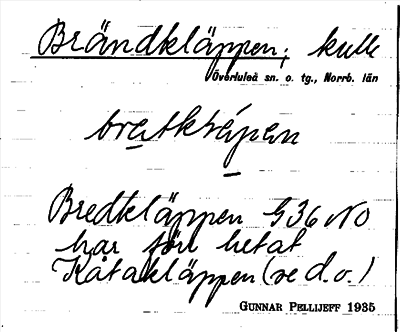 Brändkläppen; kulle
Överluleå sn. o. tg., Norrb. län
bratkläpen
Bredtkläppen G36 NO
har förr hetat
Kåtakläppen (se d.o.)
GUNNAR PELLIJEFF 1935